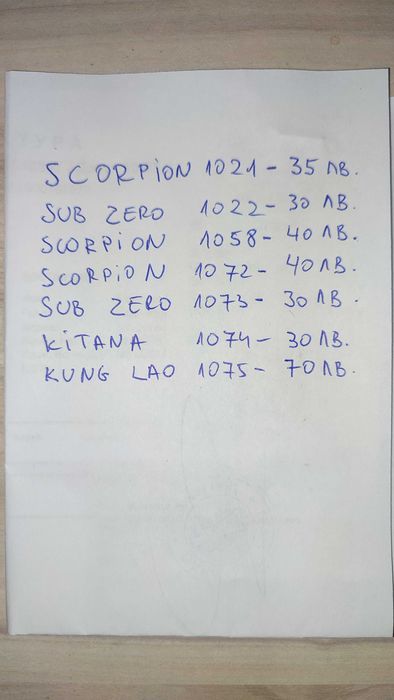 SCORPiON 1021 - 35 ЛВ.
SUB ZERO 1022 - 30 ЛВ.
SCORPiON 1058 - 40 ЛВ.
SCORPiON 1072 - 40 ЛВ.
SUB ZERO 1073 - 30 ЛВ.
KiTANA 1074 - 30 ЛВ.
KUNG LAO 1075 - 70 ЛВ.